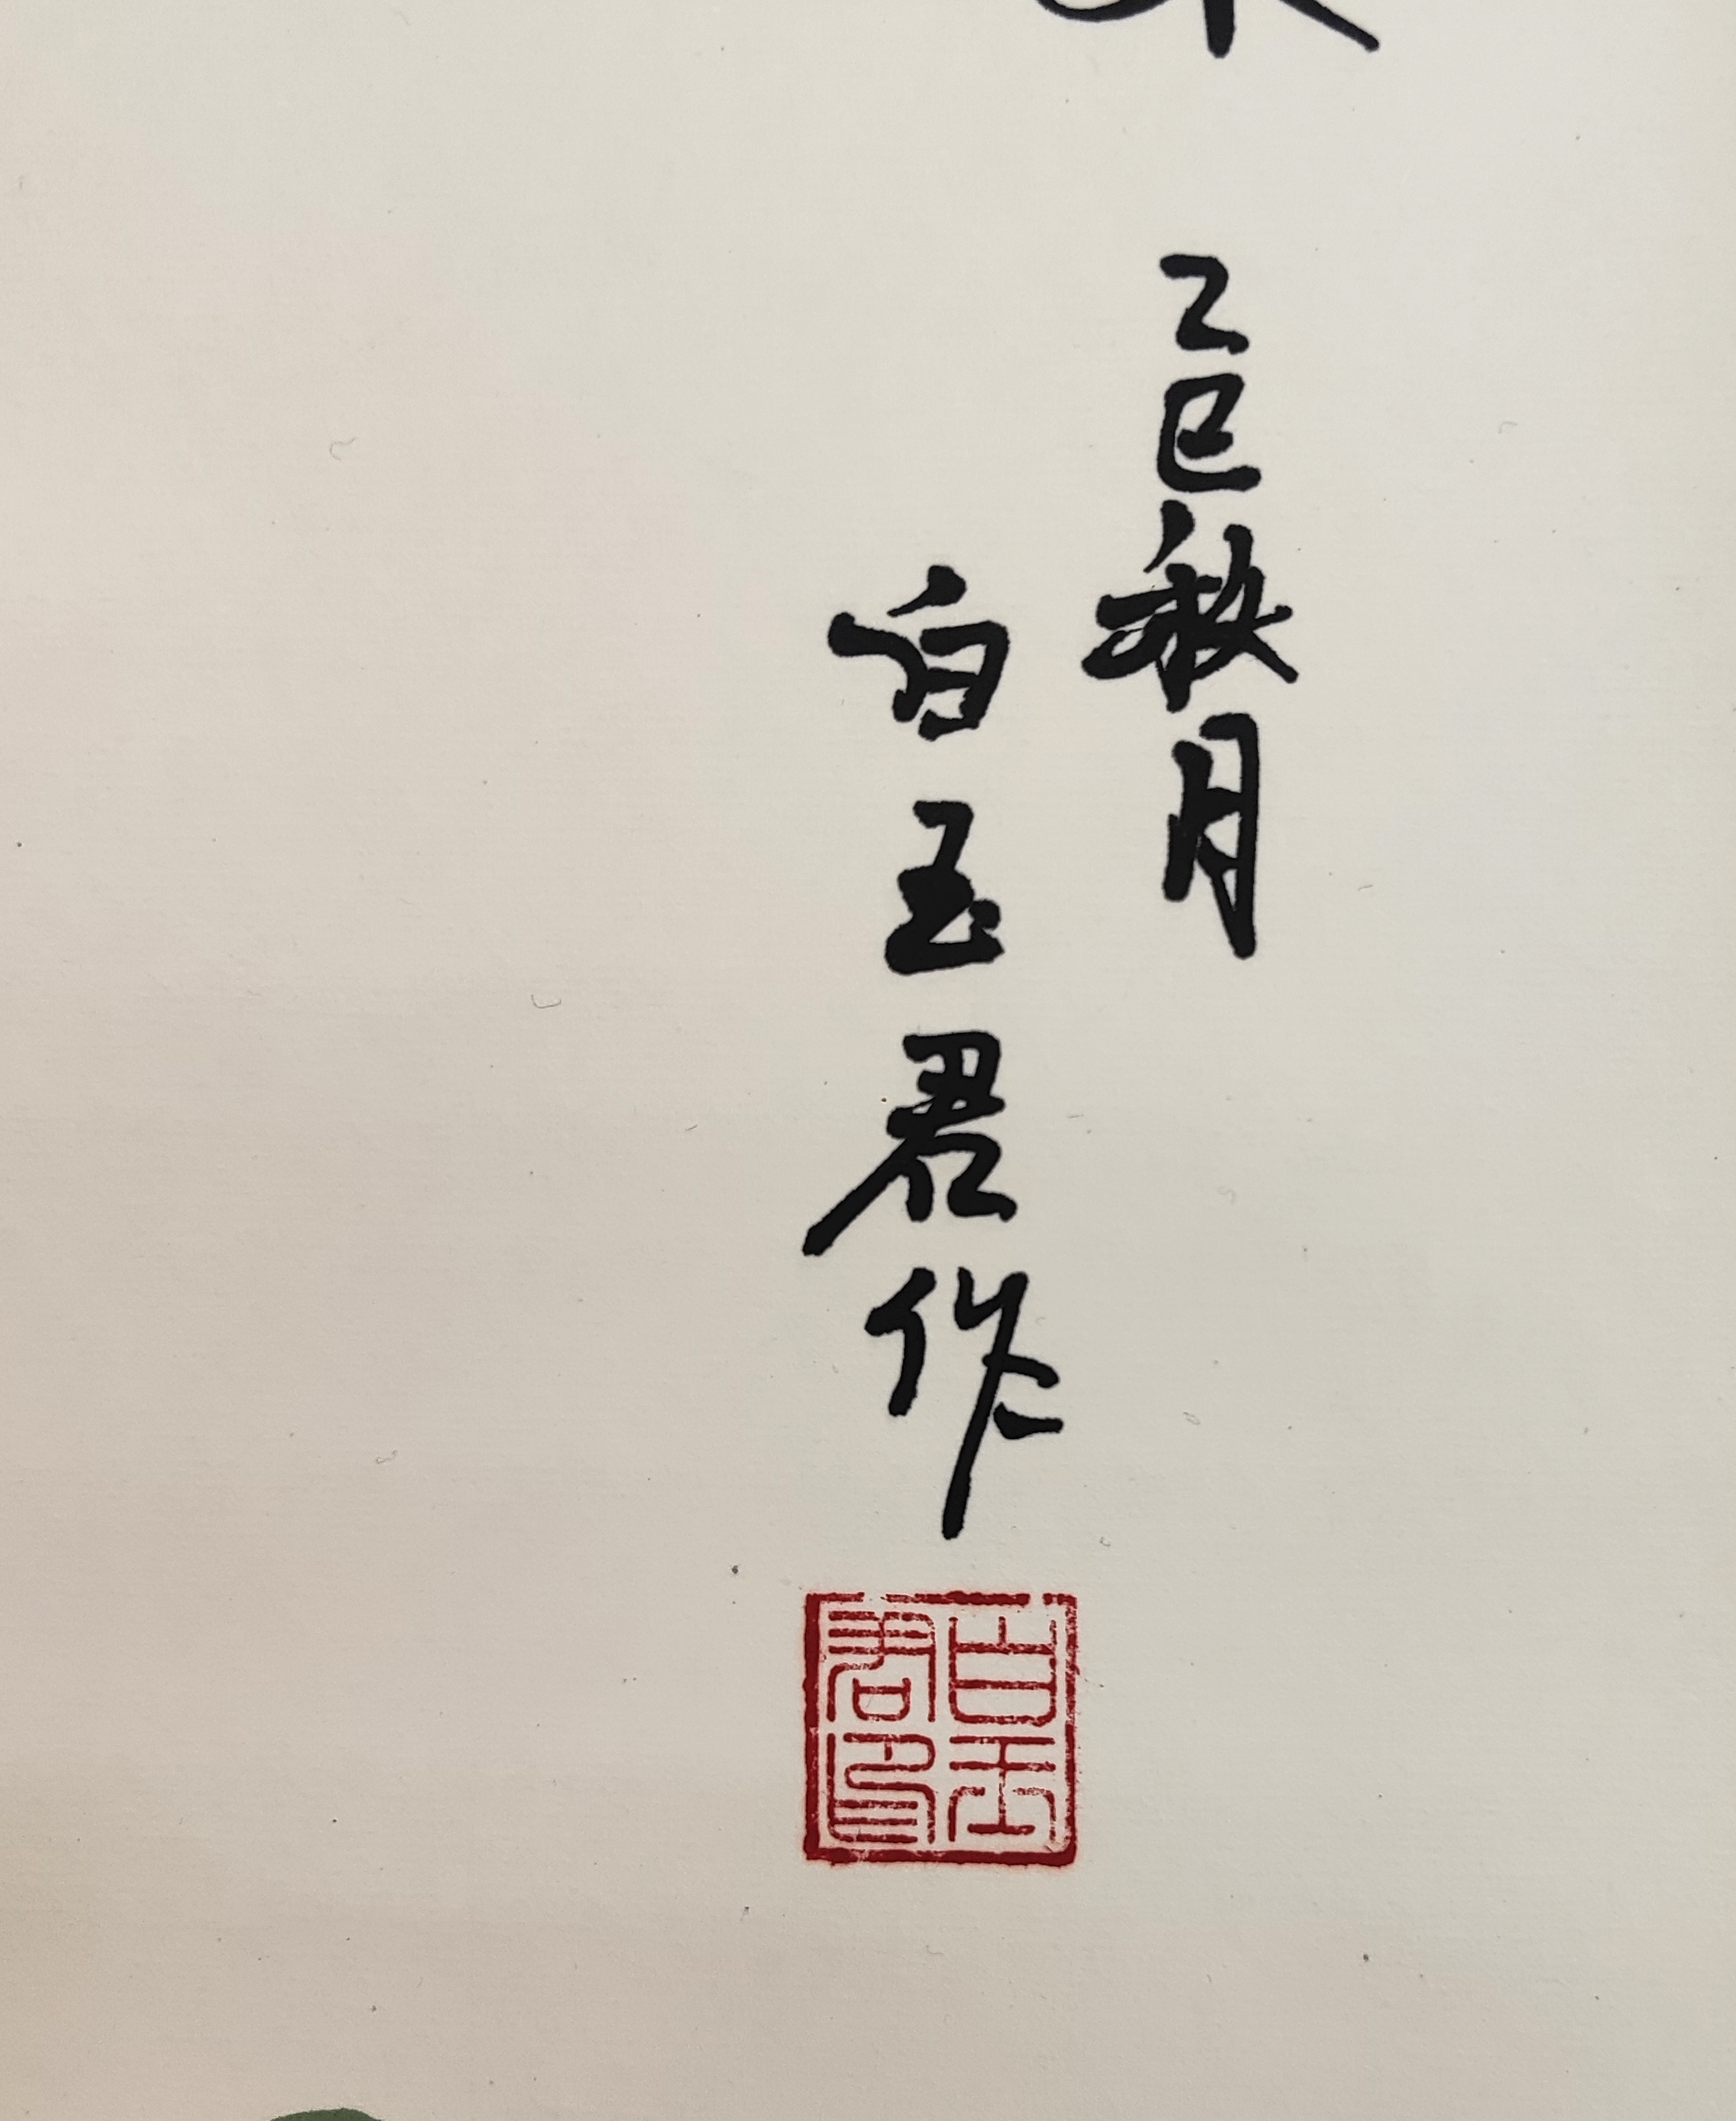 乙巳秋月
白玉君作
白玉
君印